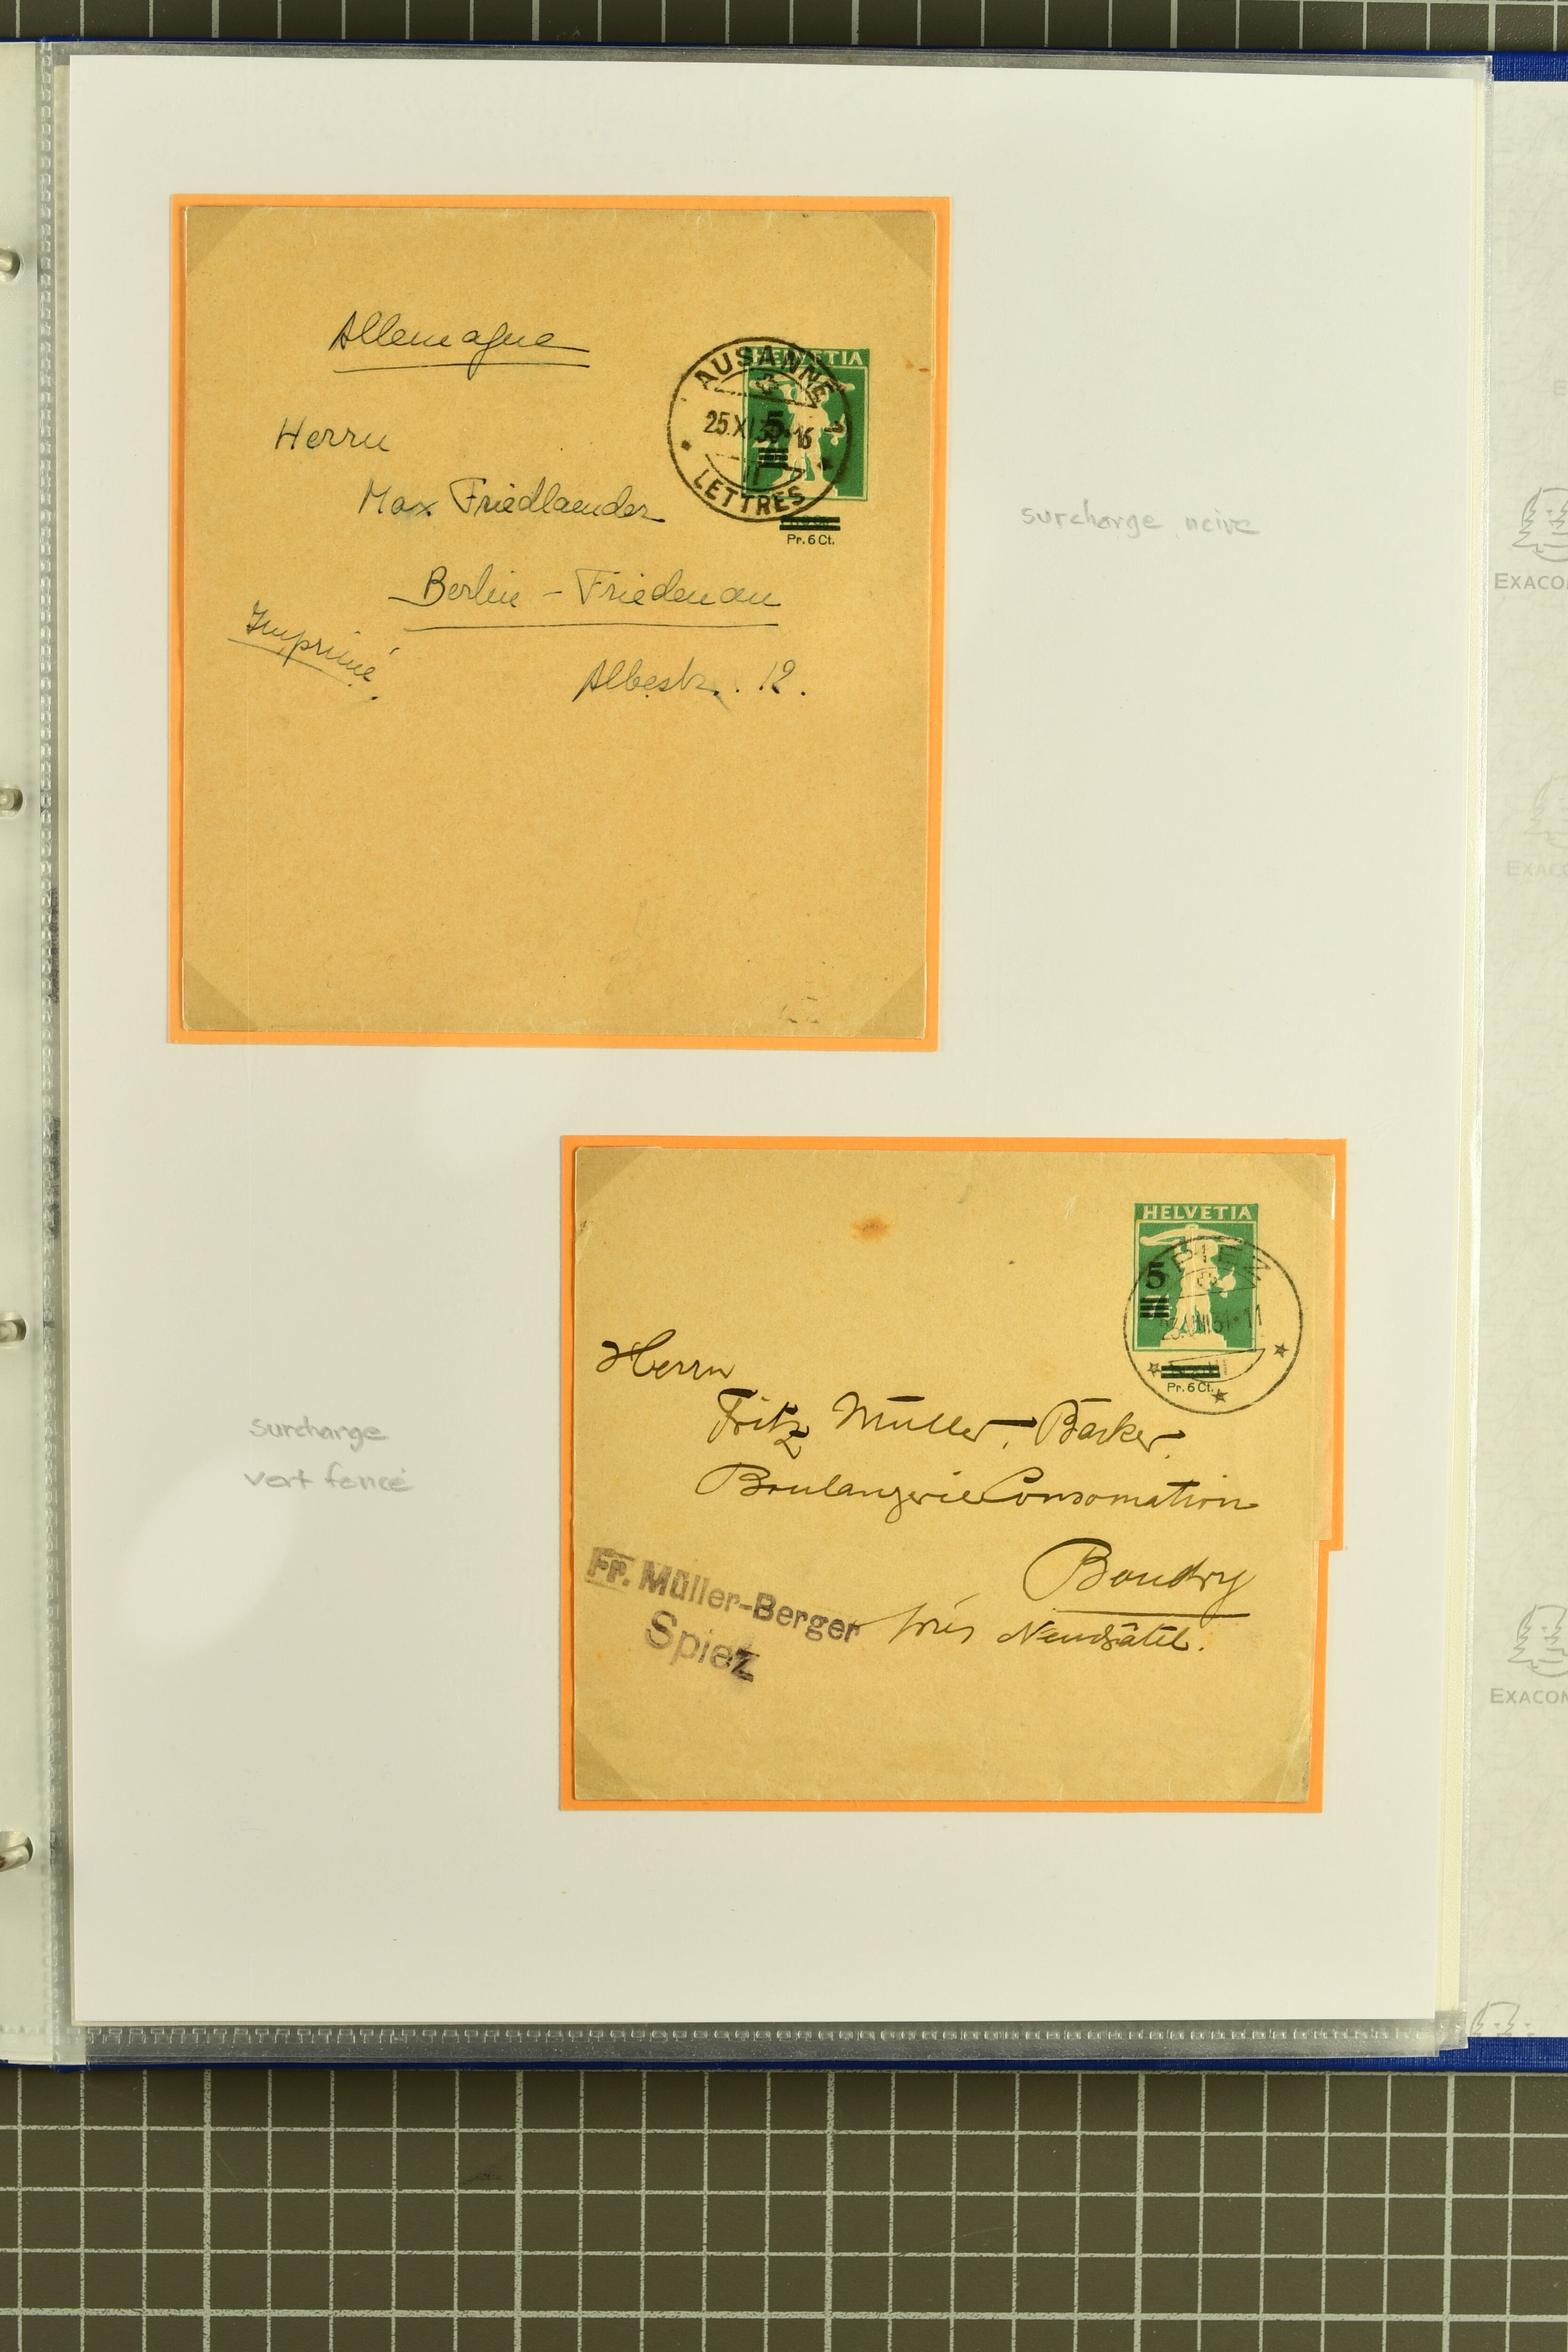 Allemagne
Herrn
Max Friedlaender
Berlin - Friedenau
Imprimé
Albestr. 12.
HELVETIA
LAUSANNE 1
25.XI.30-16
5
LETTRES
Pr. 6 Ct.
surcharge noire
HELVETIA
5
SPIEZ
31-11
Pr. 6 Ct.
Herrn
Fritz Müller, Bäcker
Boulangerie Consomation
Boudry
près Neuchâtel.
Fr. Müller-Berger
Spiez
surcharge
vert foncé
EXACO
EXACO
EXACOM